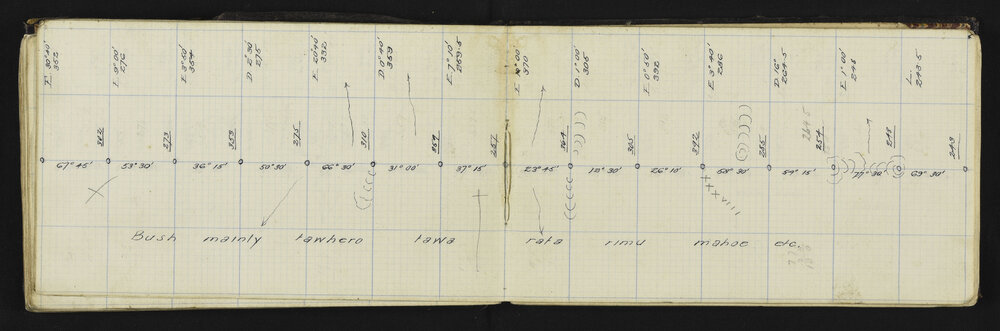 E. 30° 40' 352
E. 9° 00' 276
E 3° 50' 354
D. 2° 30' 275
E. 20° 40' 332
D. 0° 40' 359
E. 7° 10' 269.5
E. 14° 00' 370
D. 1° 00' 305
E. 0° 50' 392
E. 3° 40' 286
D. 16° 264.5
E. 1° 00' 245
L. 243.5
273
353
275
310
359
267
364
305
392
255
254
245
243
67° 45' 53° 30' 36° 15' 50° 30' 66° 30' 31° 00' 37° 15' 23° 45' 18° 30' 26° 10' 58° 30' 54° 15' 77° 30' 69° 30'
Bush mainly tawhero tawa rata rimu mahoe etc